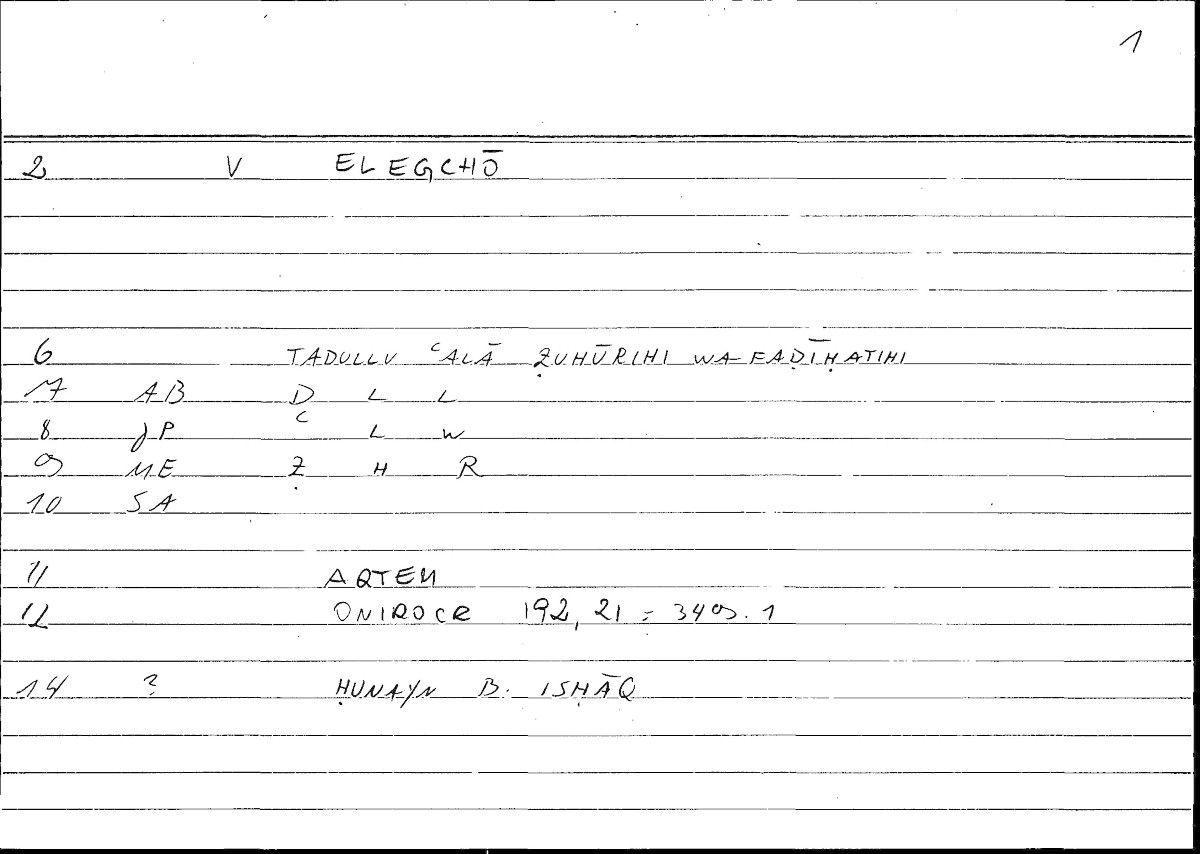 1
2 V ELEGCHŌ
6 TADULLU ʿALĀ ẒUHŪRIHI WA-FAḌĪḤATIHI
7 AB D L L
8 JP ʿ L W
9 ME Ẓ H R
10 SA
11 ARTEM
12 ONIROCR 192, 21 = 349.1
14 ? ḤUNAYN B. ISḤĀQ